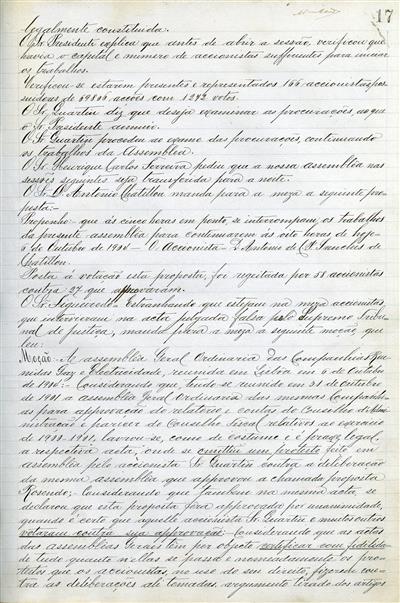 17
legalmente constituida.
O Sr. Presidente explica que antes de abrir a sessão, verificou que
havia o capital e numero de accionistas sufficientes para iniciar
os trabalhos.
Verificou-se estarem presentes e representados 166 accionistas pos-
suidores de acções com 1272 votos.
O Sr. Quartin diz que deseja examinar as procurações, ao que
o Sr. Presidente annuir.
O Sr. Quartin procedeu ao exame das procurações, continuando
os trabalhos da Assemblea.
O Sr. Henrique Carlos Ferreira pediu que a nossa assembléa nas
sessões seguintes seja transferida para a noite.
O Sr. D. Antonio Chatillon manda para a meza a seguinte pro-
posta:-
Proponho:- que ás cinco horas em ponto, se interrompam os trabalhos
da presente assemblea para continuarem ás oito horas de hoje-
6 de Outubro de - O Accionista - D. Antonio de Sanches de
Chatillon.
Posta á votação esta proposta, foi regeitada por 58 accionistas
contra 27 que approvaram.
O Sr. Extranhando que estejam na meza accionistas,
que intervieram na acta julgada falsa pelo Supremo Tribu-
nal de Justiça, manda para a meza a seguinte moção, que
leu:
Moção:- A assembléa Geral Ordinaria das Companhias Reu-
nidas Gaz e Electricidade, reunida em Lisboa em 6 de Outubro
de :- Considerando que, tendo-se reunido em 31 de Outubro
de 1901 a assembléa Geral Ordinaria das mesmas Companhi-
as para approvação do relatorio e contas do Conselho d'Admi-
nistração e parecer do Conselho fiscal relativos ao exercicio
de 1900-1901, lavrou-se, como de costume e é praxe legal,
a respectiva acta, onde se omittiu um protesto feito em
assembléa pelo accionista Sr. Quartin contra a deliberação
da mesma assembléa que approvou a chamada proposta
Rosendo;- Considerando que tambem na mesma acta, se
declarou que esta proposta fôra approvada por unanimidade,
quando é certo que aquelle accionista Sr. Quartin e muitos outros
votaram contra sua approvação - Considerando que as actas
das assembléas Geraes tem por objecto certificar com fidelida-
de tudo quanto n'ellas se passa e nomeadamente os pro-
testos que os accionistas, no uso do seu direito, fizerem con-
tra as deliberações ali tomadas, argumento tirado dos artigos